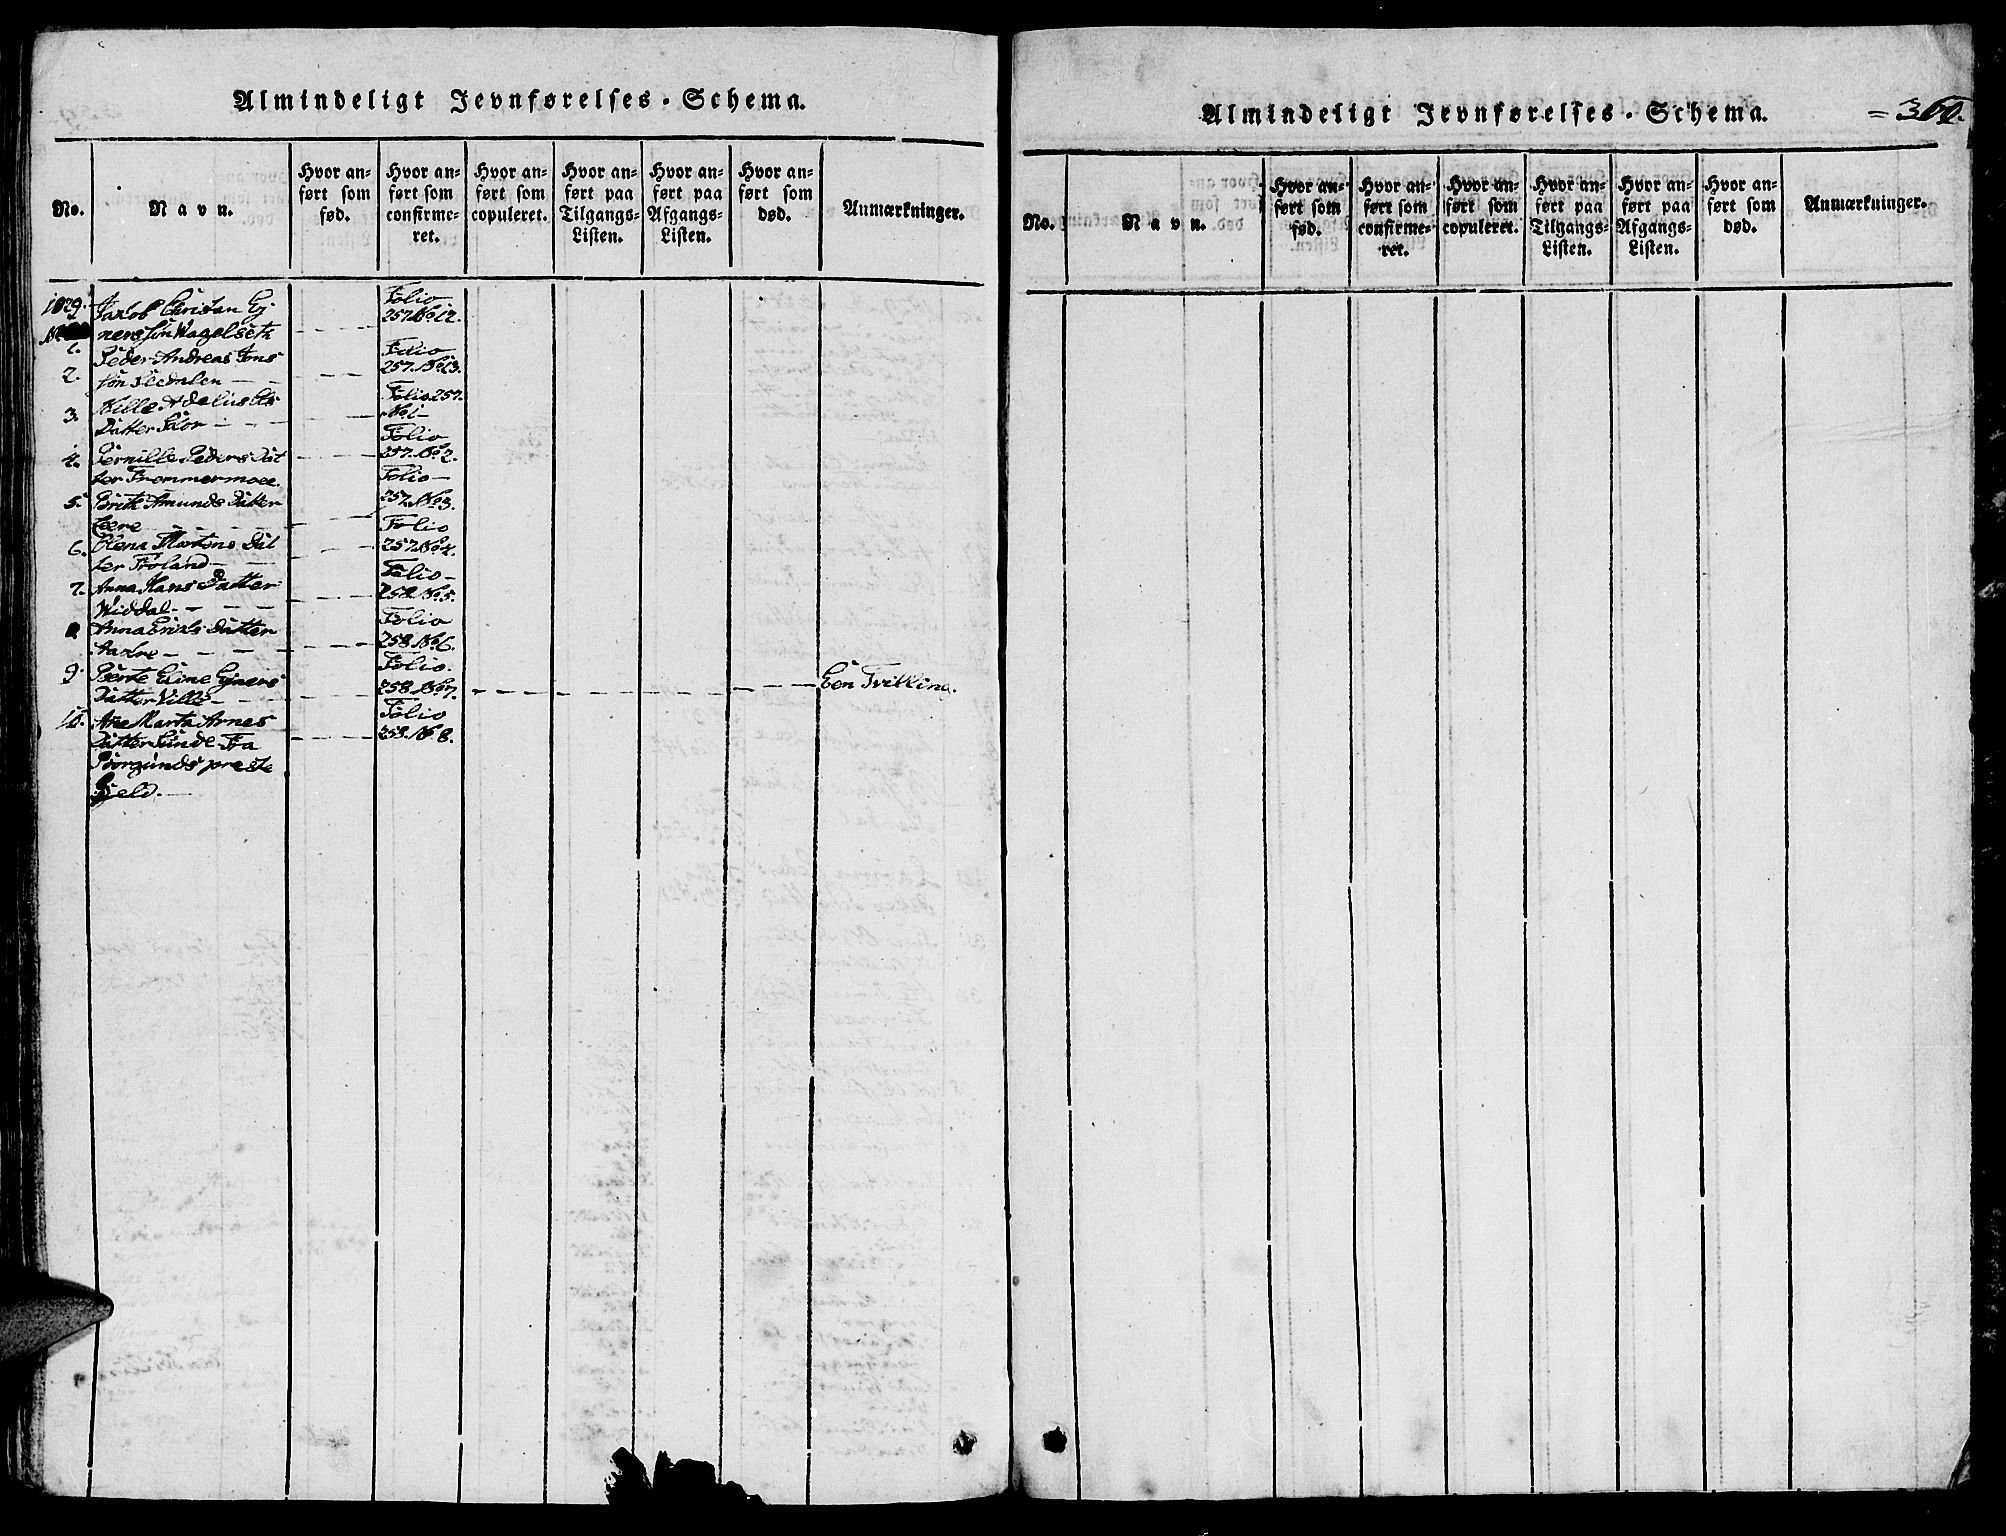 Almindeligt Jevnførelses-Schema.
No.
Navn.
Hvor an-
ført som
fød.
Hvor an-
ført som
confirme-
ret.
Hvor an-
ført som
copuleret.
Hvor an-
ført paa
Tilgangs-
Listen.
Hvor an-
ført paa
Afgangs-
Listen.
Hvor an-
ført som
død.
Anmærkninger.
1829.
1. Jakob Christan Ej
nerssøn Wagelseth
Folio
257 No 12.
2. Peder Andreas Jons
søn
Folio
257. No 13.
3. Nille
Datter
Folio 257.
No 1
4. Pernille Peders Dat
ter Frommermoee.
Folio
257. No 2.
5. Brith Amunds Datter
Leere
Folio
257. No 3.
6. Olena Mortens Dat
ter Froland
Folio
257. No 4.
7. Anna Hans Datter
Widdal
Folio
258. No 5.
8 Anna Eriks Datter
Aakre
Folio
258. No 6.
9. Berte Eline Ejners
Datter Ville
Folio.
258. No 7.
Een Tvilling.
10. Ane Marta Arnes
Datter Sunde Fra
Borgunds preste
Gjeld.
Folio
258. No 8.
Almindeligt Jevnførelses-Schema.
= 360.
No.
Navn.
Hvor an-
ført som
fød.
Hvor an-
ført som
confirme-
ret.
Hvor an-
ført som
copuleret.
Hvor an-
ført paa
Tilgangs-
Listen.
Hvor an-
ført paa
Afgangs-
Listen.
Hvor an-
ført som
død.
Anmærkninger.